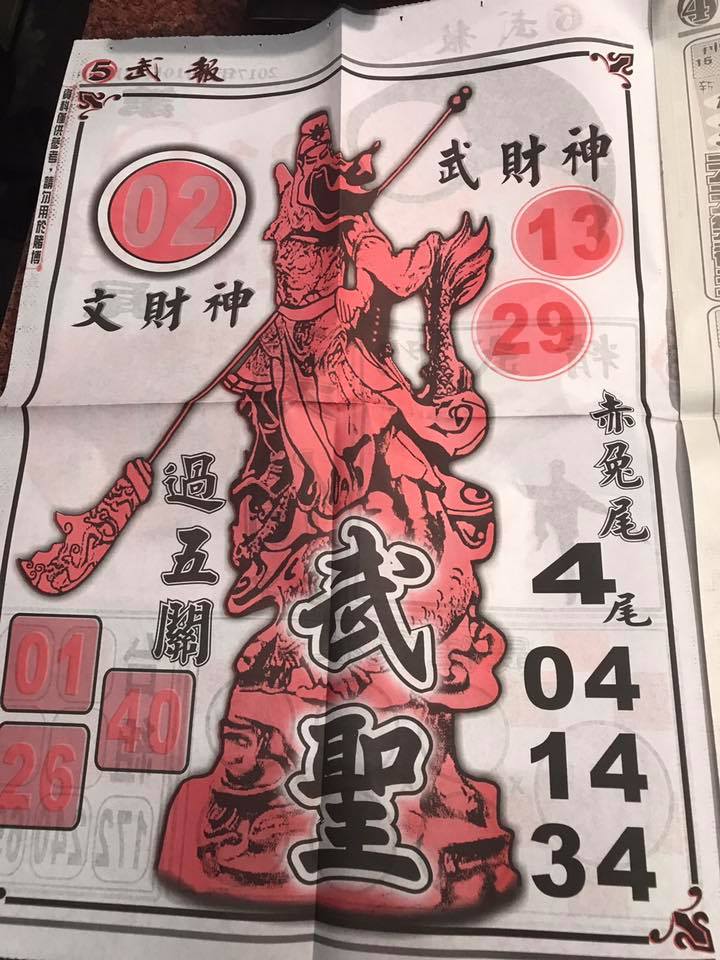 5 武報
資料僅供參考，請勿用於賭博
02
文財神
武財神
13
29
赤兔尾
4尾
04
14
34
過五關
01
40
26
武聖